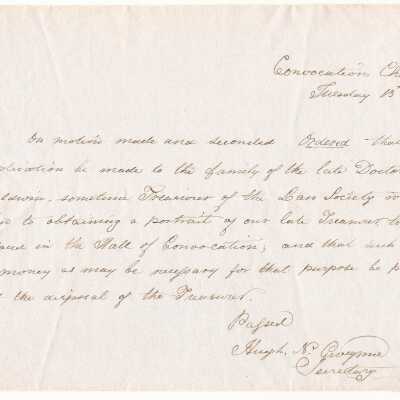 Convocation Ch
Tuesday 13
On motion made and seconded Ordered that
plication be made to the family of the late Doctor
ldwin, sometime Treasurer of the Law Society w
to obtaining a portrait of our late Treasurer to
in the Hall of Convocation, and that such
money as may be necessary for that purpose be p
the disposal of the Treasurer.
Passed
Hugh. N. Gwynne
Secretary